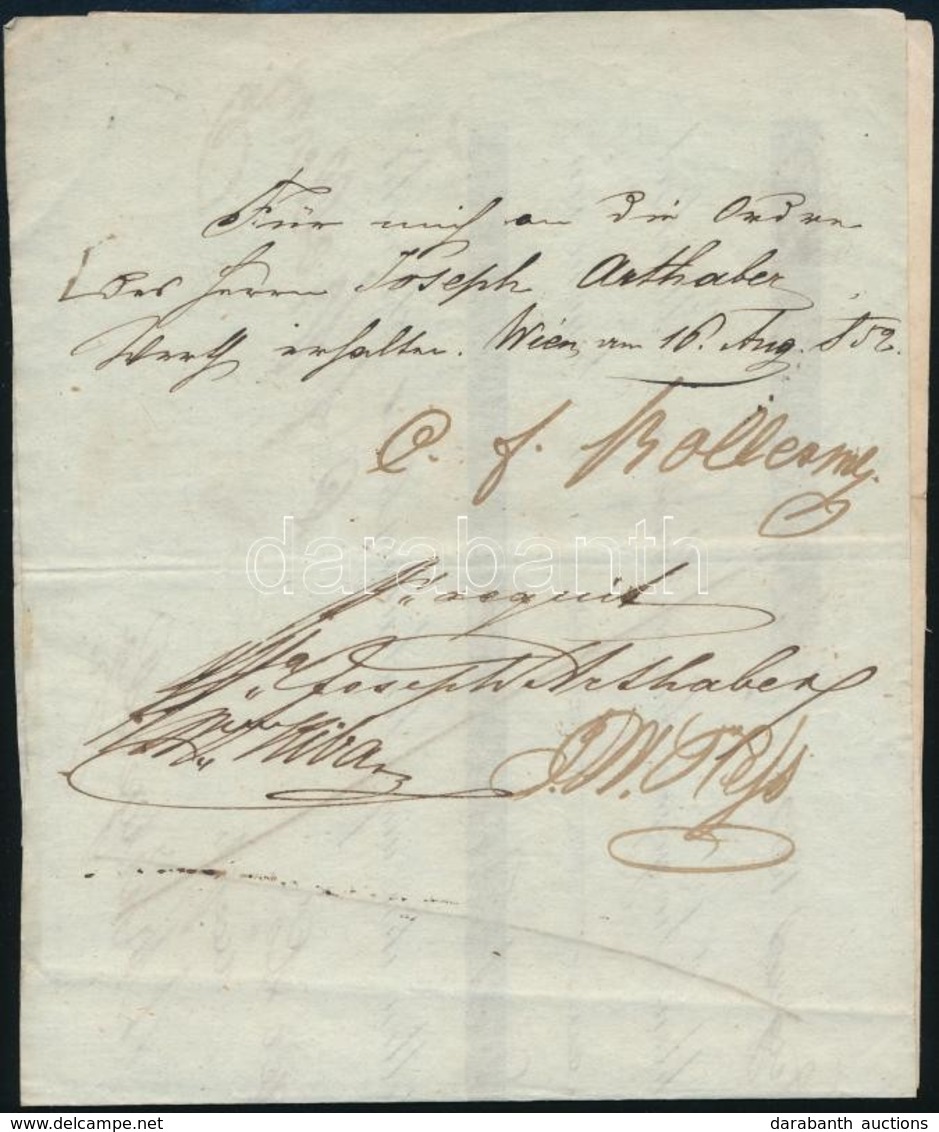 Für mich an die Ordre
des Herrn Joseph Arthaber
Werth erhalten. Wien am 16. Aug. 852.
C. F.
darabanth
acquit
Joseph Arthaber
J. W.
delcampe.net
darabanth auctions